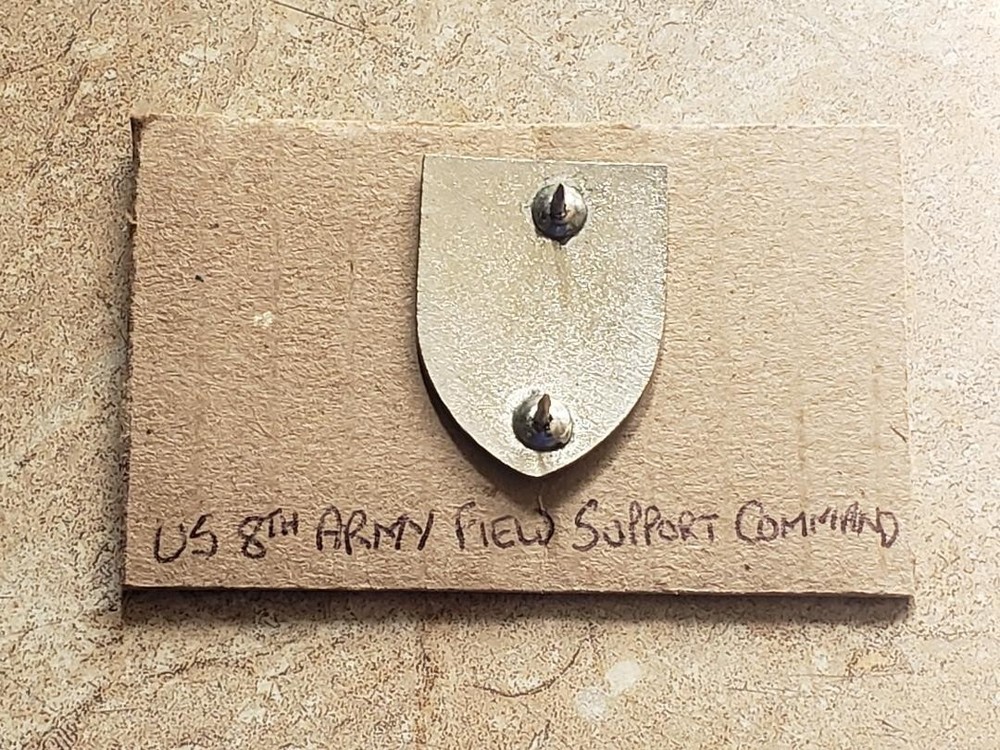 US 8TH ARMY FIELD SUPPORT COMMAND